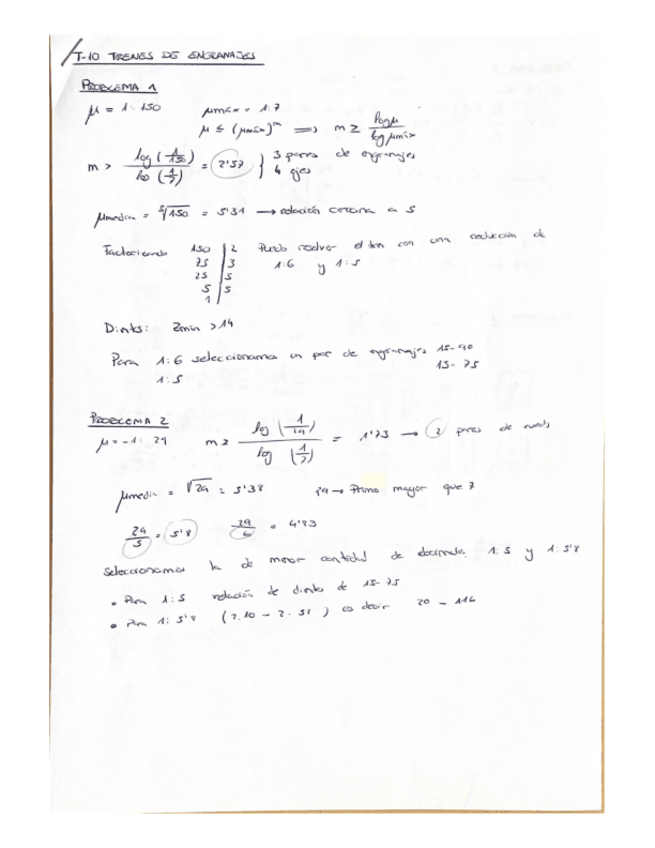 T-10 TRENES DE ENGRANAJES
PROBLEMA 1
μ = 1:150 μmáx = 1:7
μ ≤ (μmáx)^m ⟹ m ≥ log μ / log μmáx
m > log (1/150) / log (1/7) = 2'57 } 3 pares de engranajes
4 ejes
μmedia = ∛150 = 5'31 → relación cercana a 5
Factorizando 150 | 2 Puedo resolver el tren con una reducción de
75 | 3 1:6 y 1:5
25 | 5
5 | 5
1
Dients: Zmin > 14
Para 1:6 seleccionamos un par de engranajes 15-90
1:5 15-75
PROBLEMA 2
μ = -1:29 m ≥ log (1/29) / log (1/7) = 1'73 → 2 pares de ruedas
μmedia = √29 = 5'38 29 → Primo mayor que 7
29/5 = 5'8 29/6 = 4'83
Seleccionamos la de menor cantidad de decimales 1:5 y 1:5'8
• Para 1:5 relación de dients de 15-75
• Para 1:5'8 (2·10 - 2·58) es decir 20 - 116